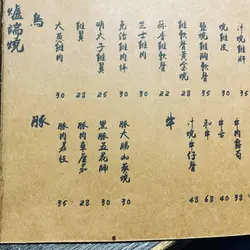 爐端燒
鳥
大蔥雞肉 30
雞翼 28
明太子雞翼 25
免治雞肉棒 30
芝士雞肉
蒜香雞軟骨
雞軟骨黃金燒 28
鹽燒雞胸軟骨 35
燒雞皮 30
汁燒雞肝
豚
豚肉荔枝 35
豚肉車厘茄 28
黑豚五花腩 30
豚大腸山葵燒 30
牛
汁燒牛仔骨 48
和牛 68
牛舌 40
牛肉露筍 38